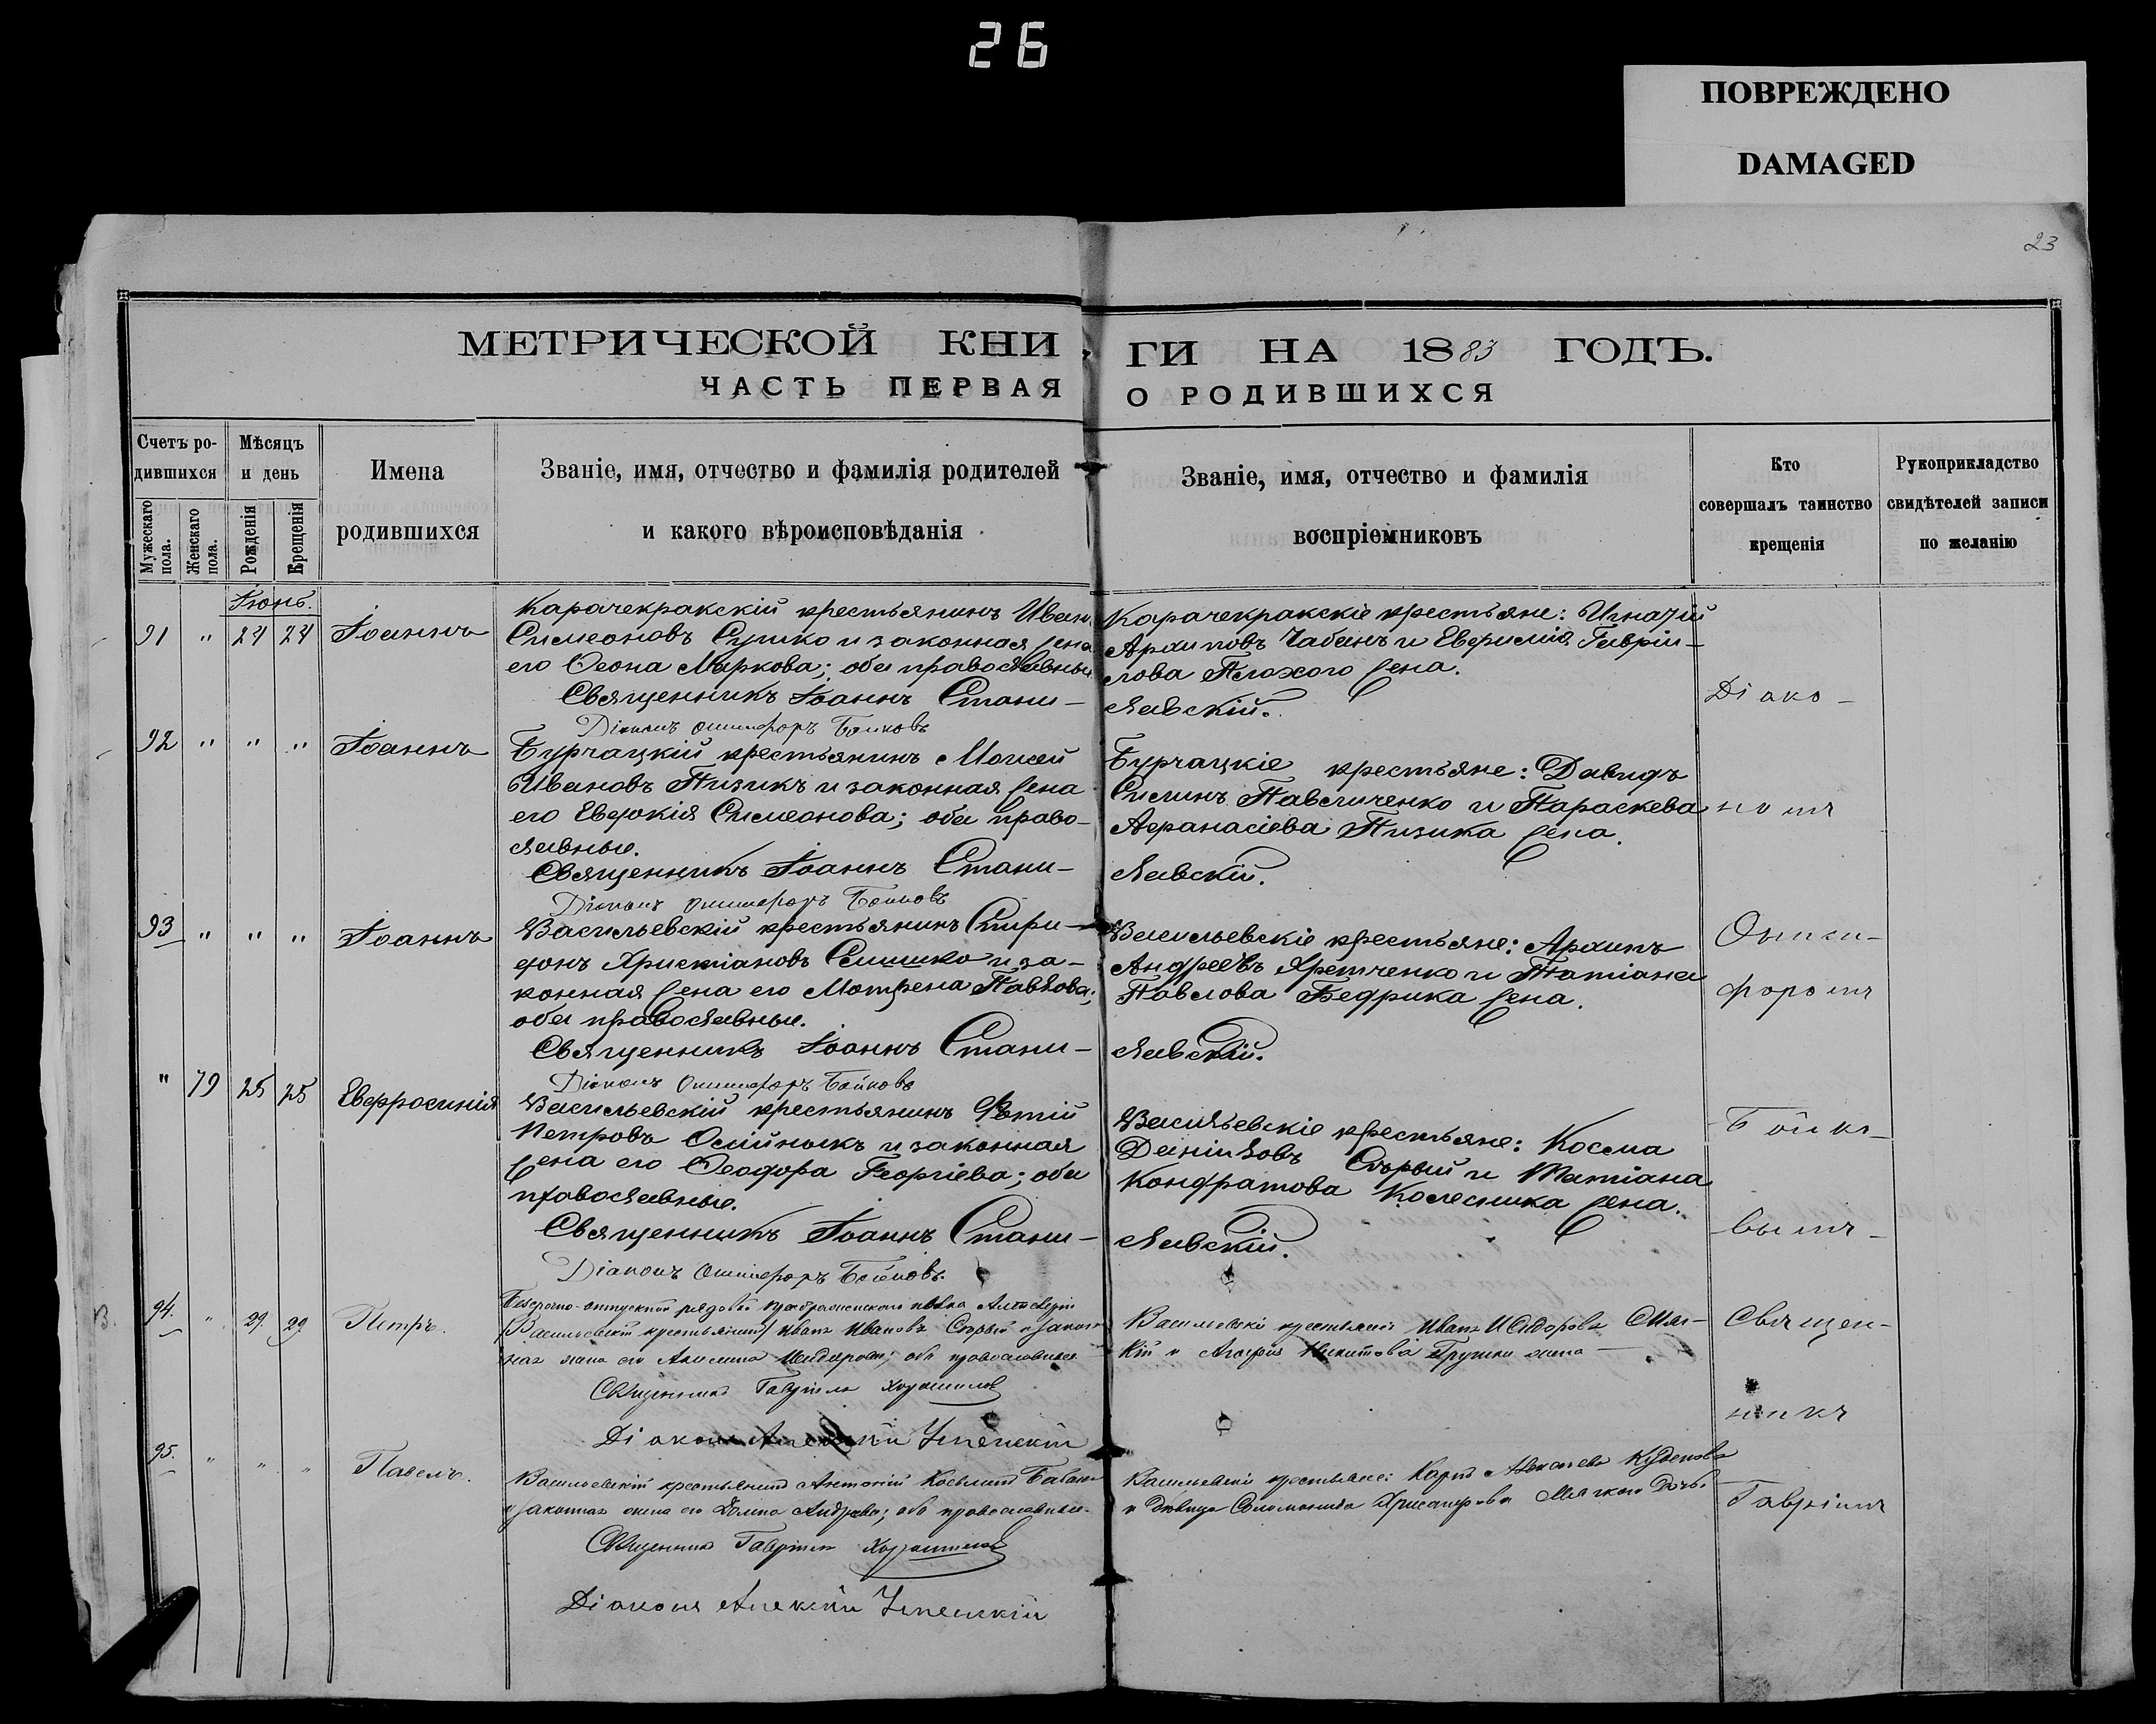 26
ПОВРЕЖДЕНО
DAMAGED
23
МЕТРИЧЕСКОЙ КНИ
ГИ НА 1883 ГОДЪ.
ЧАСТЬ ПЕРВАЯ
О РОДИВШИХСЯ
Счетъ ро-
дившихся
Мужескаго пола.
Женскаго пола.
Мѣсяцъ
и день
Рожденія
Крещенія
Имена
родившихся
Званіе, имя, отчество и фамилія родителей
и какого вѣроисповѣданія
Званіе, имя, отчество и фамилія
воспріемниковъ
Кто
совершалъ таинство
крещенія
Рукоприкладство
свидѣтелей записи
по желанію
Іюнь.
91 " 24 24 Іоаннъ
Карачекракскій крестьянинъ Иванъ
Симеоновъ Сушко и законная жена
его Ѳеона Маркова; оба православные
Священникъ Іоаннъ Стани-
Діаконъ Онисифоръ Бойковъ
Карачекракскіе крестьяне: Игнатій
Архиповъ Чабанъ и Евфимія Гаврі-
лова Плохого жена.
славскій.
Діако-
92 " " " Іоаннъ
Бурчацкій крестьянинъ Моисей
Ивановъ Пизикъ и законная жена
его Евдокія Симеонова; оба право-
славные.
Священникъ Іоаннъ Стани-
Діаконъ Онисифоръ Бойковъ
Бурчацкіе крестьяне: Давидъ
Силинъ Павличенко и Параскева
Афанасіева Пизика жена.
лавскій.
номъ
93 " " " Іоаннъ
Васильевскій крестьянинъ Спири-
донъ Христіановъ Семишко и за-
конная жена его Мотрена Павлова;
оба православные.
Священникъ Іоаннъ Стани-
Діаконъ Онисифоръ Бойковъ
Васильевскіе крестьяне: Архипъ
Андреевъ Яретченко и Татіана
Павлова Бедрика жена.
лавскій.
Ониси-
форомъ
" 79 25 25 Евфросинія
Васильевскій крестьянинъ Фотій
Петровъ Олійныкъ и законная
жена его Ѳеодора Георгіева; оба
православные.
Священникъ Іоаннъ Стани-
Діаконъ Онисифоръ Бойковъ.
Васильевскіе крестьяне: Косма
Даніиловъ Сѣрый и Татіана
Кондратова Колесника жена.
лавскій.
Бойко-
вымъ
94. " 29. 29. Петръ.
Безсрочно-отпускной рядовой Преображенскаго полка
(Васильевскій крестьянинъ) Иванъ Ивановъ Сѣрый и закон-
ная жена его Акилина; оба православные
Священникъ Гавріилъ
Діаконъ Алексій Успенскій
Васильевскіе крестьяне: Иванъ Исидоровъ
и Агафія Никитова Грушки жена
Священ-
никъ
95. " " " Павелъ.
Васильевскій крестьянинъ Антоній Косминъ
и законная жена его Домна Андреева; оба православные.
Священникъ Гавріилъ
Діаконъ Алексій Успенскій
Васильевскіе крестьяне: Карпъ Алексіевъ
и дѣвица Соломонида Хрисанфова дочь.
Гавріилъ